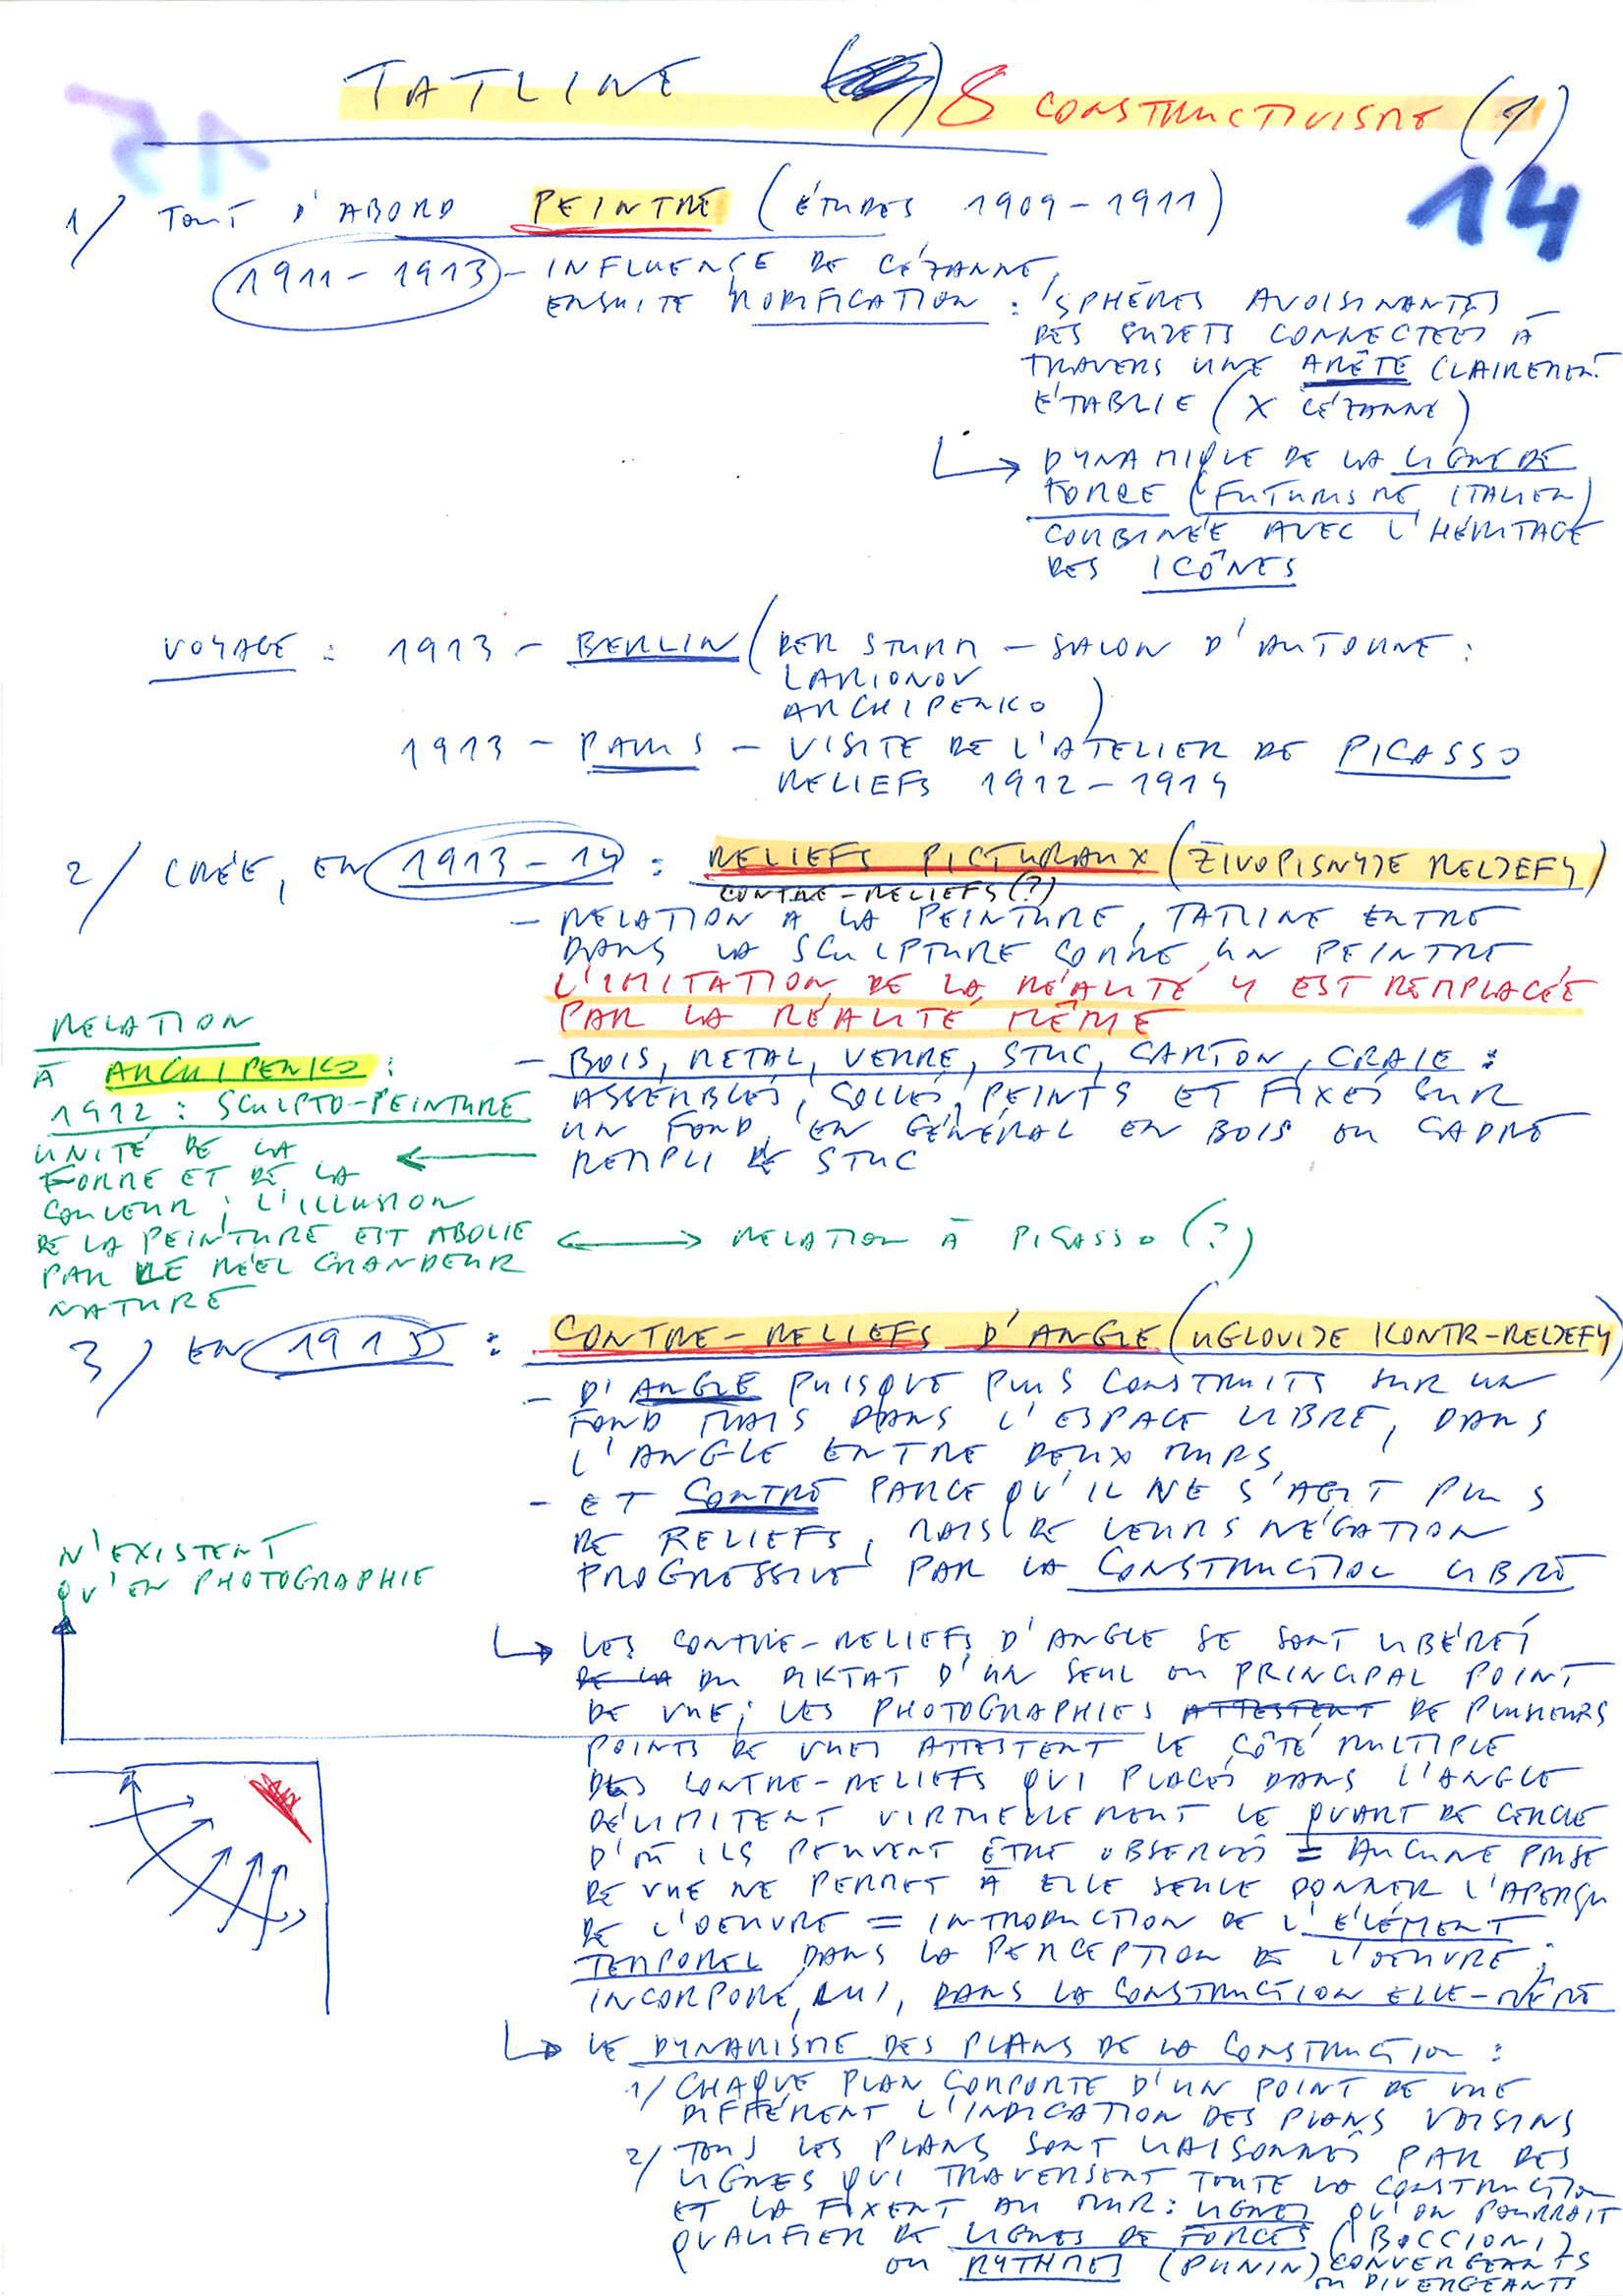 TATLINE & CONSTRUCTIVISME (1)
14
1/ TOUT D'ABORD PEINTRE (ÉTUDES 1909-1911)
1911-1913 - INFLUENCE DE CÉZANNE,
ENSUITE MODIFICATION : SPHÈRES AVOISINANTES
DES SUJETS CONNECTÉES À
TRAVERS UNE ARÊTE CLAIREMENT
ÉTABLIE (X CÉZANNE)
DYNAMIQUE DE LA LIGNE DE
FORCE (FUTURISME ITALIEN)
COMBINÉE AVEC L'HÉRITAGE
DES ICÔNES
VOYAGE : 1913 - BERLIN (DER STURM - SALON D'AUTOMNE :
LARIONOV
ARCHIPENKO)
1913 - PARIS - VISITE DE L'ATELIER DE PICASSO
RELIEFS 1912-1914
2/ CRÉE, EN 1913-14 : RELIEFS PICTURAUX (ŽIVOPISNYJE RELJEFY)
CONTRE-RELIEFS (?)
- RELATION À LA PEINTURE, TATLINE ENTRE
DANS LA SCULPTURE COMME UN PEINTRE
L'IMITATION DE LA RÉALITÉ Y EST REMPLACÉE
PAR LA RÉALITÉ MÊME
- BOIS, METAL, VERRE, STUC, CARTON, CRAIE :
ASSEMBLÉS, COLLÉS, PEINTS ET FIXÉS SUR
UN FOND, EN GÉNÉRAL EN BOIS OU CADRE
REMPLI DE STUC
RELATION
À ARCHIPENKO :
1912 : SCULPTO-PEINTURE
UNITÉ DE LA
FORME ET DE LA
COULEUR ; L'ILLUSION
DE LA PEINTURE EST ABOLIE
PAR LE RÉEL GRANDEUR
NATURE
RELATION À PICASSO (?)
3/ EN 1915 : CONTRE-RELIEFS D'ANGLE (UGLOVIJE KONTR-RELJEFY)
- D'ANGLE PUISQUE PLUS CONSTRUITS SUR UN
FOND MAIS DANS L'ESPACE LIBRE, DANS
L'ANGLE ENTRE DEUX MURS
- ET CONTRE PARCE QU'IL NE S'AGIT PLUS
DE RELIEFS, MAIS DE LEURS NÉGATION
PROGRESSIVE PAR LA CONSTRUCTION LIBRE
N'EXISTENT
QU'EN PHOTOGRAPHIE
LES CONTRE-RELIEFS D'ANGLE SE SONT LIBÉRÉS
DE LA DU DIKTAT D'UN SEUL OU PRINCIPAL POINT
DE VUE ; LES PHOTOGRAPHIES ATTESTENT DE PLUSIEURS
POINTS DE VUES ATTESTENT LE CÔTÉ MULTIPLE
DES CONTRE-RELIEFS QUI PLACÉS DANS L'ANGLE
DÉLIMITENT VIRTUELLEMENT LE QUART DE CERCLE
D'OÙ ILS PEUVENT ÊTRE OBSERVÉS = AUCUNE PRISE
DE VUE NE PERMET À ELLE SEULE DONNER L'APERÇU
DE L'OEUVRE = INTRODUCTION DE L'ÉLÉMENT
TEMPOREL DANS LA PERCEPTION DE L'OEUVRE ;
INCORPORÉ, LUI, DANS LA CONSTRUCTION ELLE-MÊME
LE DYNAMISME DES PLANS DE LA CONSTRUCTION :
1/ CHAQUE PLAN COMPORTE D'UN POINT DE VUE
DIFFÉRENT L'INDICATION DES PLANS VOISINS
2/ TOUS LES PLANS SONT LIAISONNÉS PAR DES
LIGNES QUI TRAVERSENT TOUTE LA CONSTRUCTION
ET LA FIXENT AU MUR : LIGNES QU'ON POURRAIT
QUALIFIER DE LIGNES DE FORCES (BOCCIONI)
OU RYTHMES (PUNIN) CONVERGEANTS
OU DIVERGEANTS